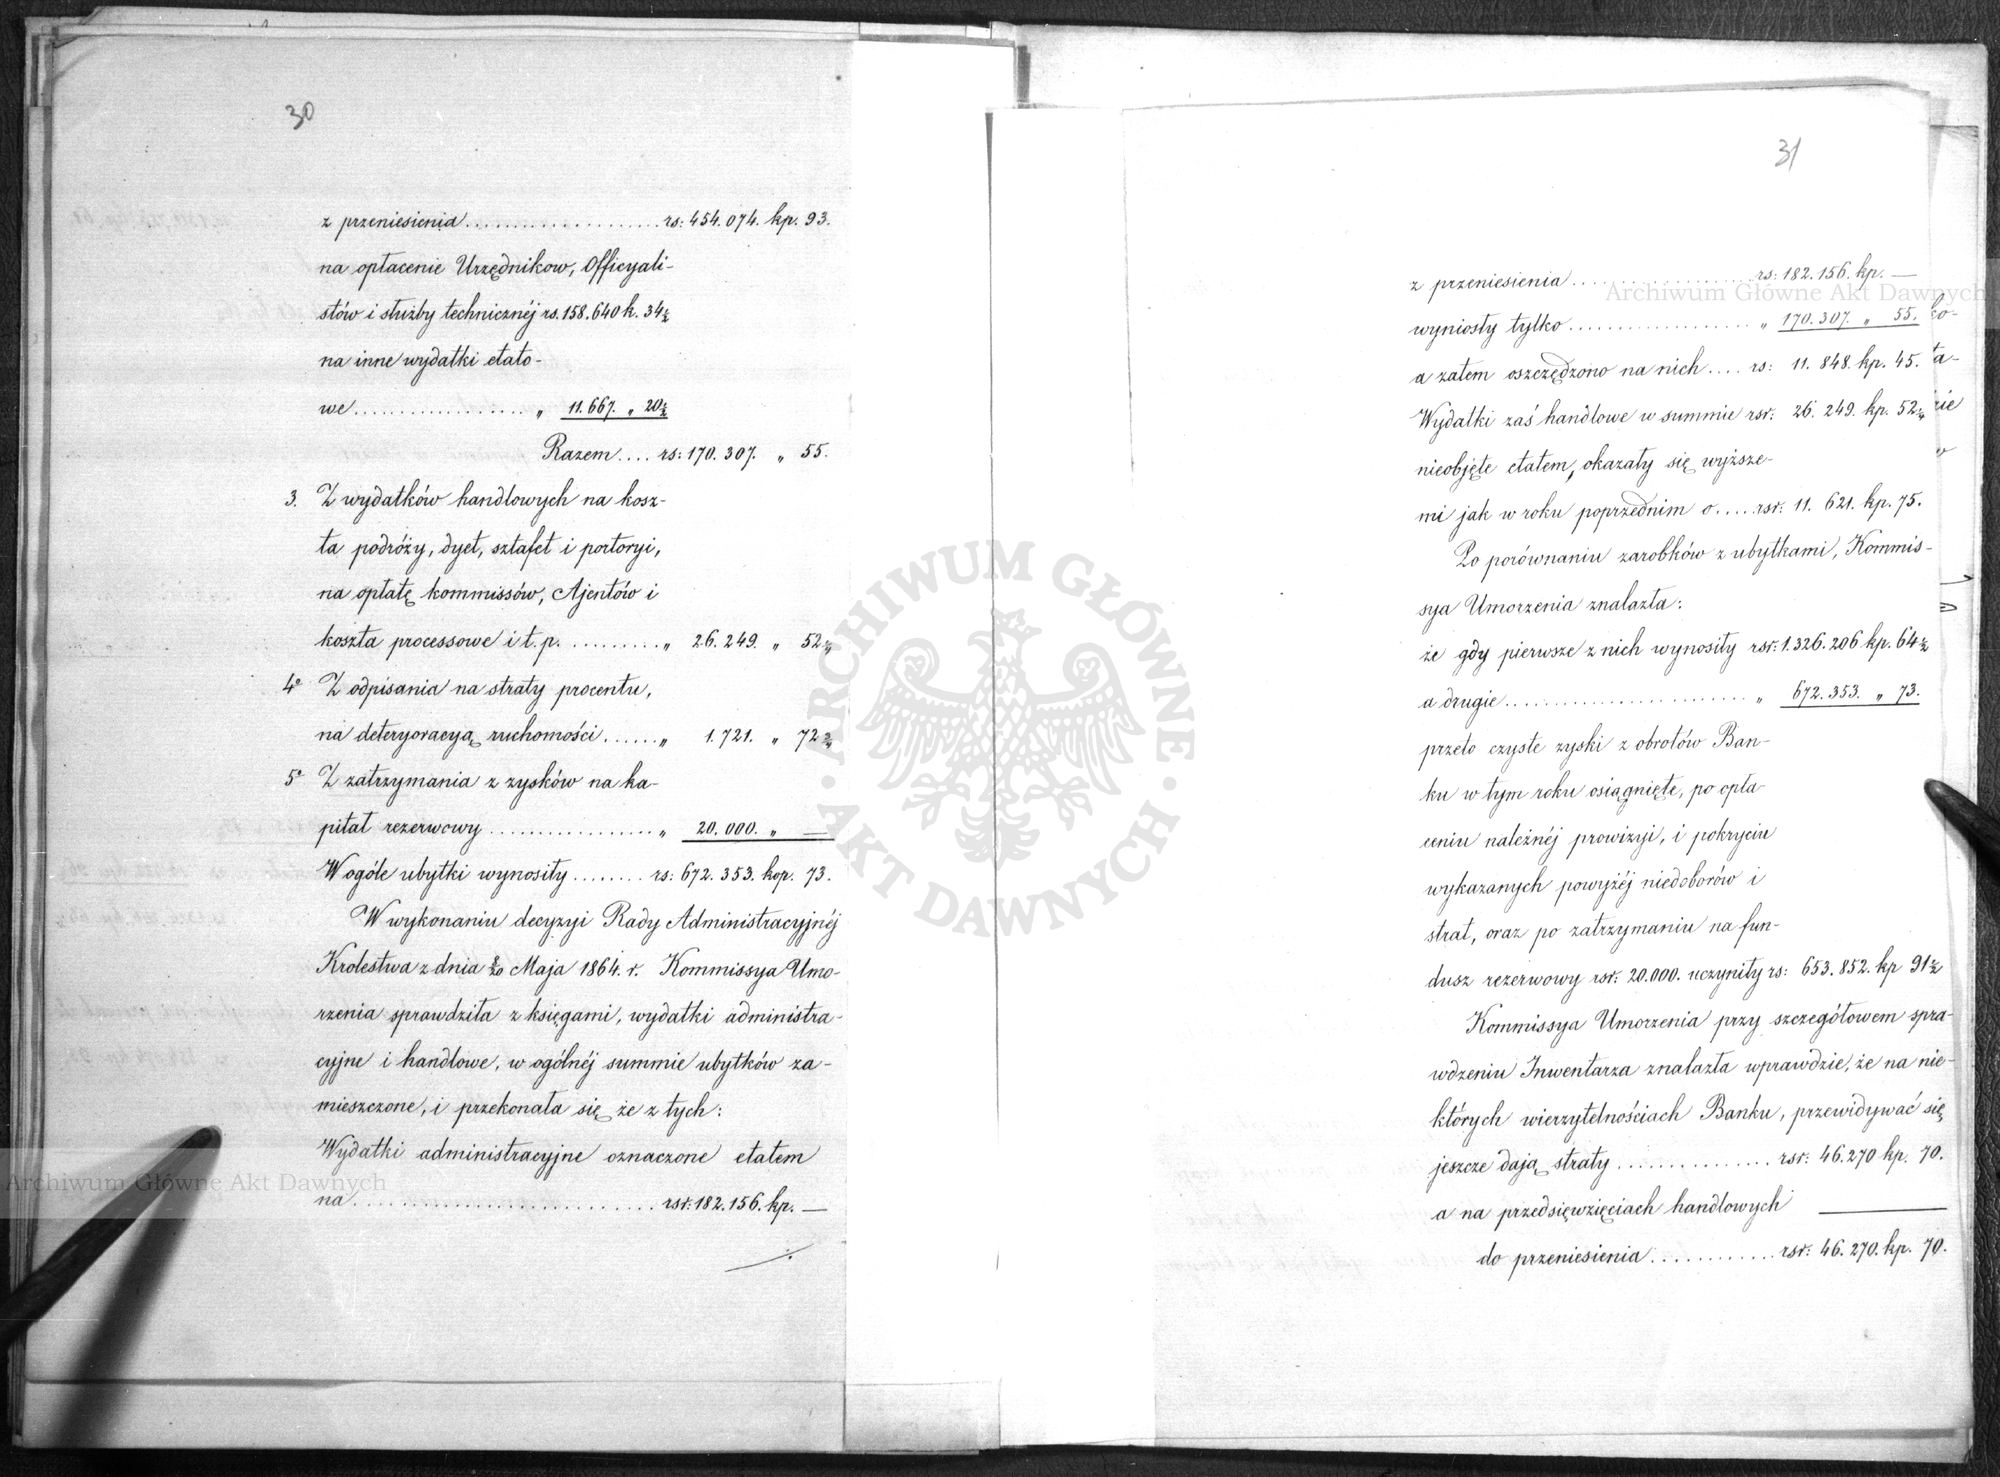 30
z przeniesienia .................... rs: 454.074. kp. 93.
na opłacenie Urzędnikow, Officyali-
stów i służby technicznéj rs. 158.640 k. 34½
na inne wydatki etato-
we .................. „ 11.667. „ 20½
Razem .... rs: 170.307. „ 55.
3. Z wydatków handlowych na kosz-
ta podróży, dyet, sztafet i portoryi,
na opłatę kommissów, Ajentów i
koszta processowe i t. p. .......... „ 26.249. „ 52¼
4º Z odpisania na straty procentu,
na deteryoracyą ruchomości ...... „ 1.721. „ 72¾
5º Z zatrzymania z zysków na ka-
pitał rezerwowy .................. „ 20.000. „ —
W ogóle ubytki wynosiły ........ rs: 672.353. kop. 73.
W wykonaniu decyzyi Rady Administracyjnéj
Krolestwa z dnia 8/20 Maja 1864. r. Kommissya Umo-
rzenia sprawdziła z księgami, wydatki administra-
cyjne i handlowe, w ogólnéj summie ubytków za-
mieszczone, i przekonała się że z tych:
Wydatki administracyjne oznaczone etatem
na ............................ rsr: 182.156. kp. —
31
z przeniesienia .................... rs: 182.156. kp. —
wyniosły tylko .................... „ 170.307. „ 55.
a zatem oszczędzono na nich .... rs: 11.848. kp. 45.
Wydatki zaś handlowe w summie rsr: 26.249. kp. 52¼
nieobjęte etatem, okazały się wyższe-
mi jak w roku poprzednim o .... rsr: 11.621. kp. 75.
Po porównaniu zarobków z ubytkami, Kommis-
sya Umorzenia znalazła:
że gdy pierwsze z nich wynosiły rsr: 1.326.206 kp. 64½
a drugie .......................... „ 672.353. „ 73.
przeto czyste zyski z obrotów Ban-
ku w tym roku osiągnięte, po opła-
ceniu należnéj prowizyi, i pokryciu
wykazanych powyżéj niedoborów i
strat, oraz po zatrzymaniu na fun-
dusz rezerwowy rsr: 20.000. uczyniły rs: 653.852. kp 91½
Kommissya Umorzenia przy szczegółowem spra-
wdzeniu Inwentarza znalazła wprawdzie, że na nie-
których wierzytelnościach Banku, przewidywać się
jeszcze dają straty ................ rsr: 46.270 kp. 70.
a na przedsięwzięciach handlowych —
do przeniesienia ............ rsr: 46.270. kp. 70.
ARCHIWUM GŁÓWNE · AKT DAWNYCH ·
Archiwum Główne Akt Dawnych
Archiwum Główne Akt Dawnych